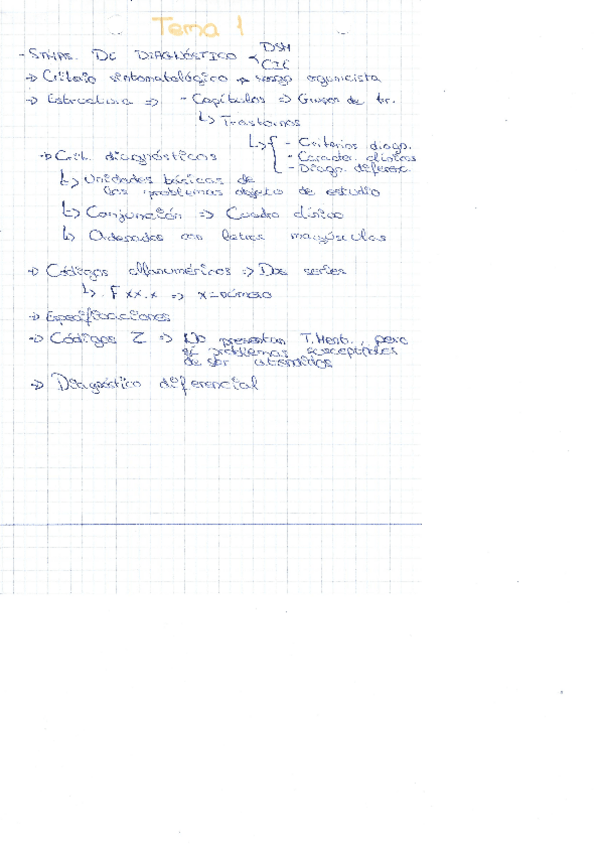 Tema 1
- DE DIAGNÓSTICO < DSM
CIE
→ Criterio sintomatológico + sesgo organicista
→ Estructura => - Capítulos => Grupos de tr.
↳ Trastornos
↳ { - Criterios diagn.
- Caracter. clínicas
- Diagn. diferenc.
→ Crit. diagnósticos
↳ Unidades básicas de
los problemas objeto de estudio
↳ Conjunción => Cuadro clínico
↳ Ordenados con letras mayúsculas
→ Códigos alfanuméricos => Dos series
↳ F xx.x => x=número
→ Especificaciones
→ Códigos Z => No presentan T.Ment., pero
sí problemas susceptibles
de ser atendidos
→ Diagnóstico diferencial